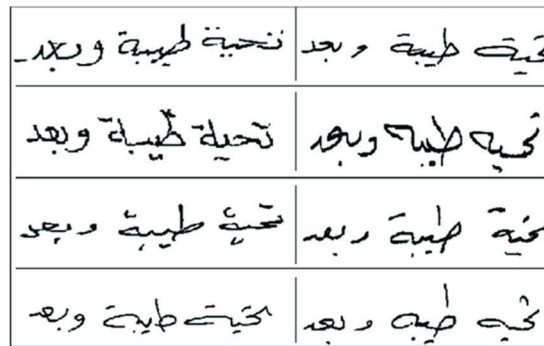 تحية طيبة وبعد تحية طيبة وبعد
تحية طيبة وبعد تحيه طيبه وبعد
تحية طيبة وبعد تحية طيبة وبعد
تحية طيبة وبعد تحيه طيبه وبعد